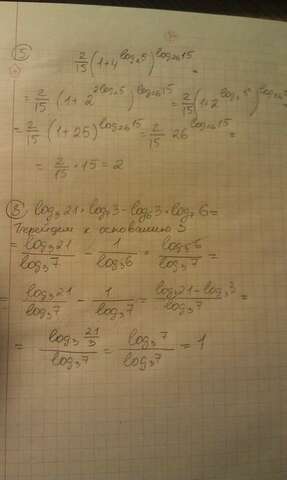 5
2/15 (1+4^{log₂5})^{log₂₆15} =
= 2/15 (1+2^{2log₂5})^{log₂₆15} = 2/15 (1+2^{log₂5
= 2/15 (1+25)^{log₂₆15} = 2/15 26^{log₂₆15} =
= 2/15 · 15 = 2
log₃21 · log₇3 - log₆3 · log₇6 =
Перейдем к основанию 3
= log₃21/log₃7 - 1/log₃6 · log₃6/log₃7 =
= log₃21/log₃7 - 1/log₃7 = log₃21-log₃3/log₃7 =
= log₃ 21/3 / log₃7 = log₃7/log₃7 = 1